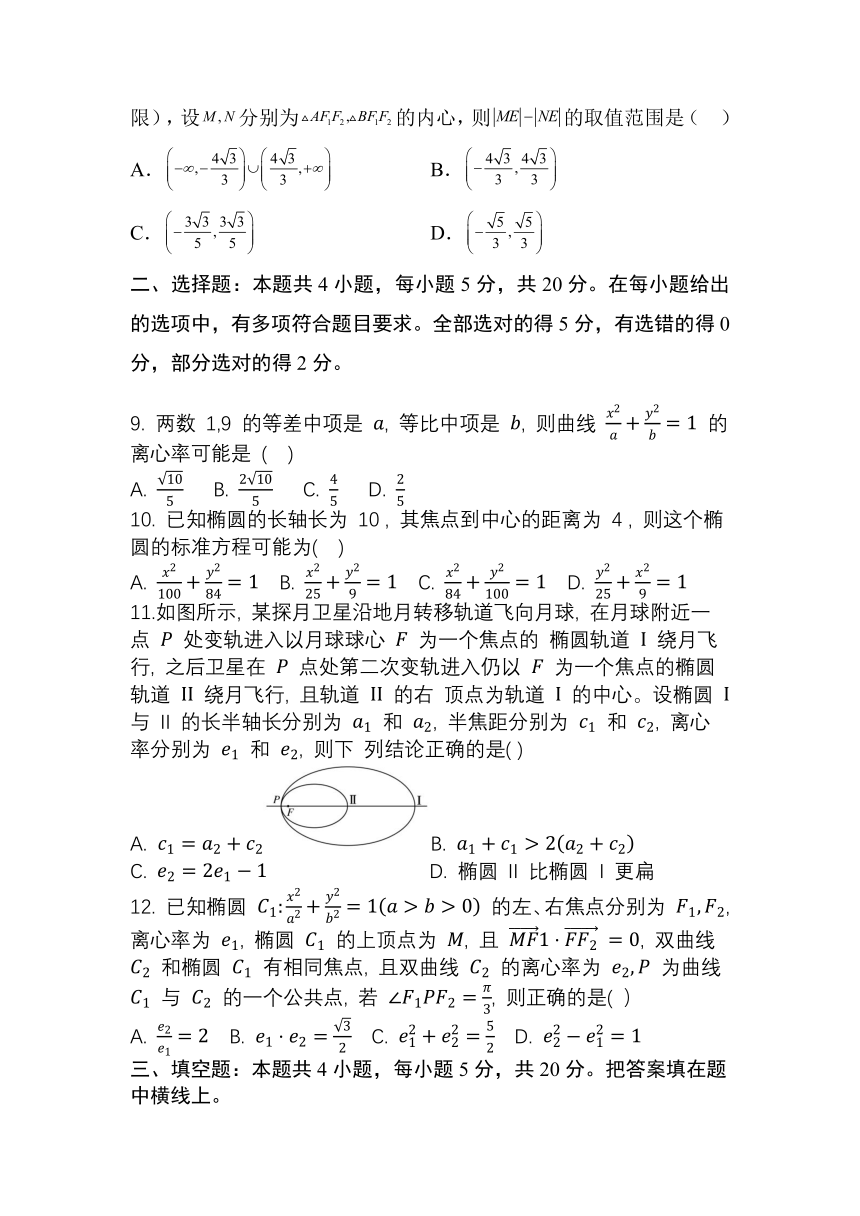 限），设M,N分别为△AF₁F₂,△BF₁F₂的内心，则|ME|−|NE|的取值范围是（　）
A．(−∞,−4√3/3)∪(4√3/3,+∞) B．(−4√3/3,4√3/3)
C．(−3√3/5,3√3/5) D．(−√5/3,√5/3)
二、选择题：本题共 4 小题，每小题 5 分，共 20 分。在每小题给出
的选项中，有多项符合题目要求。全部选对的得 5 分，有选错的得 0
分，部分选对的得 2 分。
9. 两数 1,9 的等差中项是 a, 等比中项是 b, 则曲线 x²/a + y²/b = 1 的
离心率可能是 (　)
A. √10/5 B. 2√10/5 C. 4/5 D. 2/5
10. 已知椭圆的长轴长为 10 , 其焦点到中心的距离为 4 , 则这个椭
圆的标准方程可能为(　)
A. x²/100 + y²/84 = 1 B. x²/25 + y²/9 = 1 C. x²/84 + y²/100 = 1 D. y²/25 + x²/9 = 1
11.如图所示, 某探月卫星沿地月转移轨道飞向月球, 在月球附近一
点 P 处变轨进入以月球球心 F 为一个焦点的 椭圆轨道 I 绕月飞
行, 之后卫星在 P 点处第二次变轨进入仍以 F 为一个焦点的椭圆
轨道 II 绕月飞行, 且轨道 II 的右 顶点为轨道 I 的中心。设椭圆 I
与 II 的长半轴长分别为 a₁ 和 a₂, 半焦距分别为 c₁ 和 c₂, 离心
率分别为 e₁ 和 e₂, 则下 列结论正确的是( )
P F II I
A. c₁ = a₂ + c₂ B. a₁ + c₁ > 2(a₂ + c₂)
C. e₂ = 2e₁ − 1 D. 椭圆 II 比椭圆 I 更扁
12. 已知椭圆 C₁: x²/a² + y²/b² = 1(a > b > 0) 的左、右焦点分别为 F₁, F₂,
离心率为 e₁, 椭圆 C₁ 的上顶点为 M, 且 →MF1 · →FF₂ = 0, 双曲线
C₂ 和椭圆 C₁ 有相同焦点, 且双曲线 C₂ 的离心率为 e₂, P 为曲线
C₁ 与 C₂ 的一个公共点, 若 ∠F₁PF₂ = π/3, 则正确的是( )
A. e₂/e₁ = 2 B. e₁ · e₂ = √3/2 C. e₁² + e₂² = 5/2 D. e₂² − e₁² = 1
三、填空题：本题共 4 小题，每小题 5 分，共 20 分。把答案填在题
中横线上。